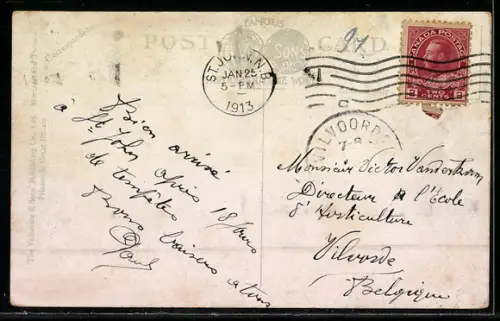 FAMOUS
POST CARD
SONS
97
ST. JOHN, N.B.
JAN 25
5-PM
1913
CANADA POSTAGE
2 TWO CENTS 2
C
VILVOORD
7-8
Bien arrivé
à St John après 18 jours
de tempêtes
Bons baisers à tous
Paul
Monsieur Victor
Directeur de l'École
d'Horticulture
Vilvorde
Belgique
Correspondence
The Valentine & Sons' Publishing Co., Ltd., Montreal and Toronto
Printed in Great Britain